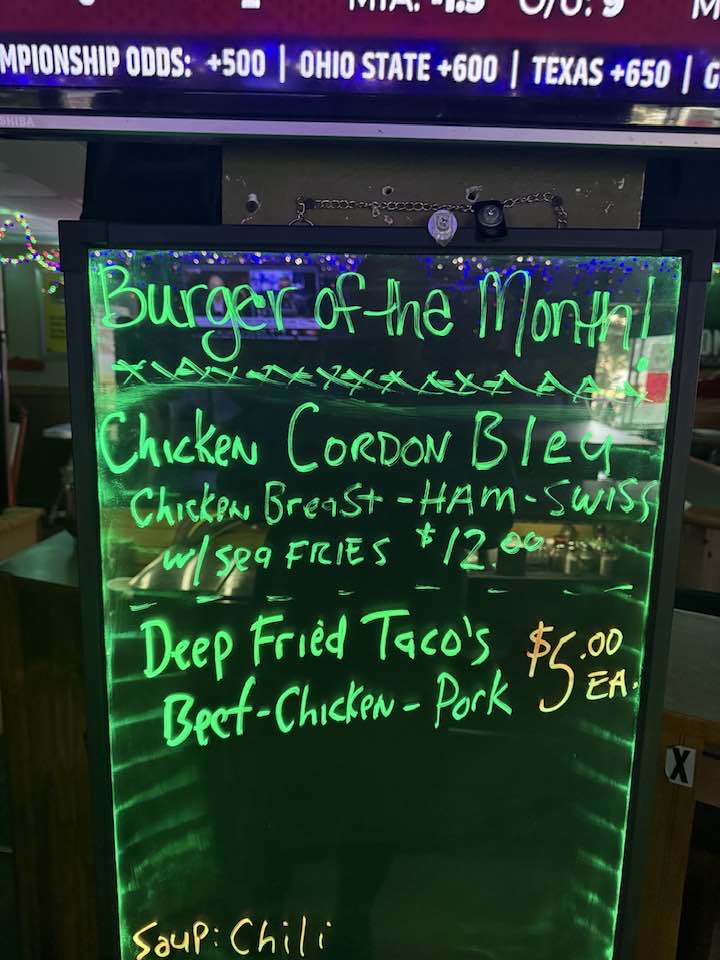 MTA: -1.5 O/U: 9
MPIONSHIP ODDS: +500 | OHIO STATE +600 | TEXAS +650 | G
SHIBA
Burger of the Month!
Chicken CORDON Bleu
Chicken Breast - HAM - SWISS
w/sea FRIES $12.00
Deep Fried Taco's $5.00
Beef-Chicken-Pork EA.
X
Soup: Chili